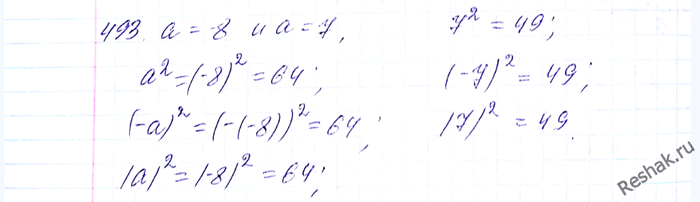 493. a = -8 и a = 7,
a² = (-8)² = 64;
(-a)² = (-(-8))² = 64;
|a|² = |-8|² = 64;
7² = 49;
(-7)² = 49;
|7|² = 49.
Reshak.ru